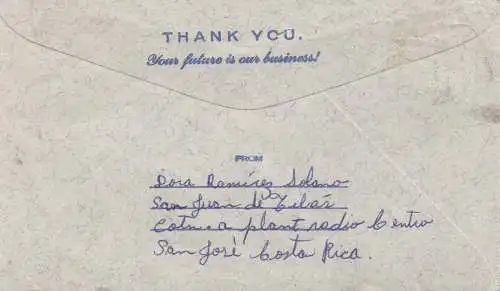 THANK YOU.
Your future is our business!
FROM
Dora Ramírez Solano
San Juan de Tibás
Cotn. a plant radio Centro
San José Costa Rica.